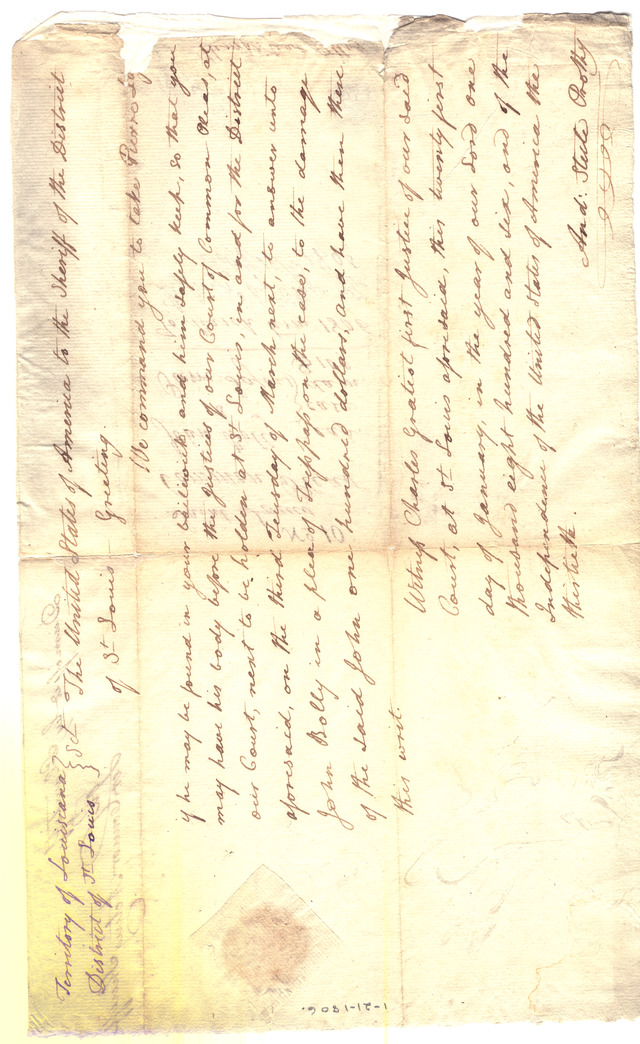 Territory of Louisiana }
District of St Louis } Sct The United States of America to the Sheriff of the District
of St Louis Greeting.
We command you to take Pierre
if he may be found in your bailiwick and him safely keep, so that you
may have his body before the Justices of our Court of Common Pleas, at
our Court, next to be holden at St Louis, in and for the District
aforesaid, on the third Tuesday of March next, to answer unto
John Bolly in a plea of Trespass on the case, to the damage
of the said John one hundred dollars, and have then there
this writ.
Witness Charles Gratiot first Justice of our said
Court, at St Louis aforesaid, this twenty first
day of January, in the year of our Lord one
thousand eight hundred and six, and of the
Independence of the United States of America the
thirtieth.
And: Steele Prothy
1-21-1806.